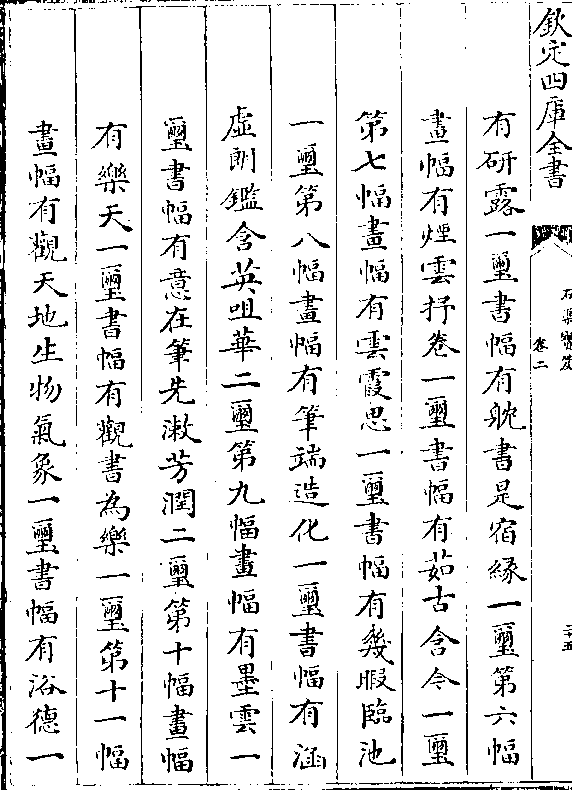 欽定四庫全書
石渠寶笈
卷二
二十五
有研露一璽書幅有躭書是宿緣一璽第六幅
畫幅有煙雲抒卷一璽書幅有茹古含今一璽
第七幅畫幅有雲霞思一璽書幅有幾暇臨池
一璽第八幅畫幅有筆端造化一璽書幅有涵
虛朗鑑含英咀華二璽第九幅畫幅有墨雲一
璽書幅有意在筆先漱芳潤二璽第十幅畫幅
有樂天一璽書幅有觀書為樂一璽第十一幅
畫幅有觀天地生物氣象一璽書幅有浴德一